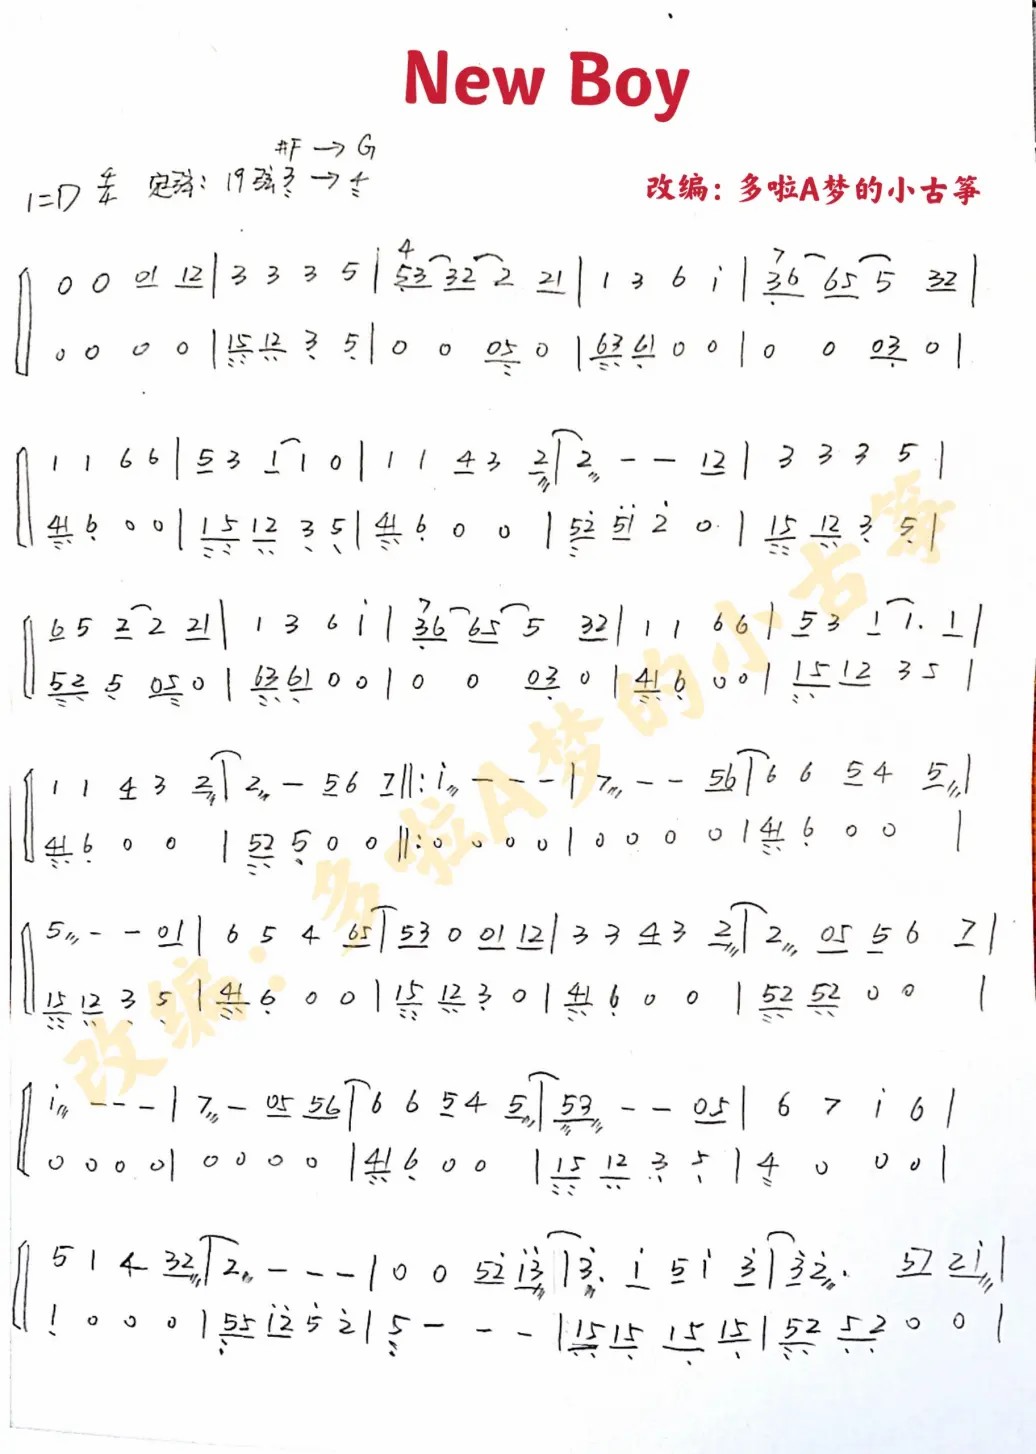 New Boy
#F → G
1=D 4/4 定弦: 19弦3 → 4
改编: 多啦A梦的小古筝
0 0 01 12 | 3 3 3 5 | 53 32 2 21 | 1 3 6 i | 36 65 5 32 |
0 0 0 0 | 15 12 3 5 | 0 0 05 0 | 63 61 0 0 | 0 0 03 0 |
1 1 6 6 | 5 3 1 1 0 | 1 1 4 3 2 | 2 - - 12 | 3 3 3 5 |
41 6 0 0 | 15 12 3 5 | 41 6 0 0 | 52 51 2 0 | 15 12 3 5 |
6 5 2 2 21 | 1 3 6 i | 36 65 5 32 | 1 1 6 6 | 5 3 1 1. 1 |
52 5 05 0 | 63 61 0 0 | 0 0 03 0 | 41 6 0 0 | 15 12 3 5 |
1 1 4 3 2 | 2 - 5 6 7 ||: i - - - | 7 - - 56 | 6 6 5 4 5 |
41 6 0 0 | 52 5 0 0 ||: 0 0 0 0 | 0 0 0 0 | 41 6 0 0 |
5 - - 01 | 6 5 4 65 | 53 0 01 12 | 3 3 4 3 2 | 2 05 5 6 7 |
15 12 3 5 | 41 6 0 0 | 15 12 3 0 | 41 6 0 0 | 52 52 0 0 |
i - - - | 7 - 05 56 | 6 6 5 4 5 | 53 - - 05 | 6 7 i 6 |
0 0 0 0 | 0 0 0 0 | 41 6 0 0 | 15 12 3 5 | 4 0 0 0 |
5 1 4 32 | 2 - - - | 0 0 52 i3 | 3. i 5 i 3 | 3 2. 57 2i |
1 0 0 0 | 55 12 5 2 | 5 - - - | 15 15 15 15 | 52 52 0 0 |
改编: 多啦A梦的小古筝